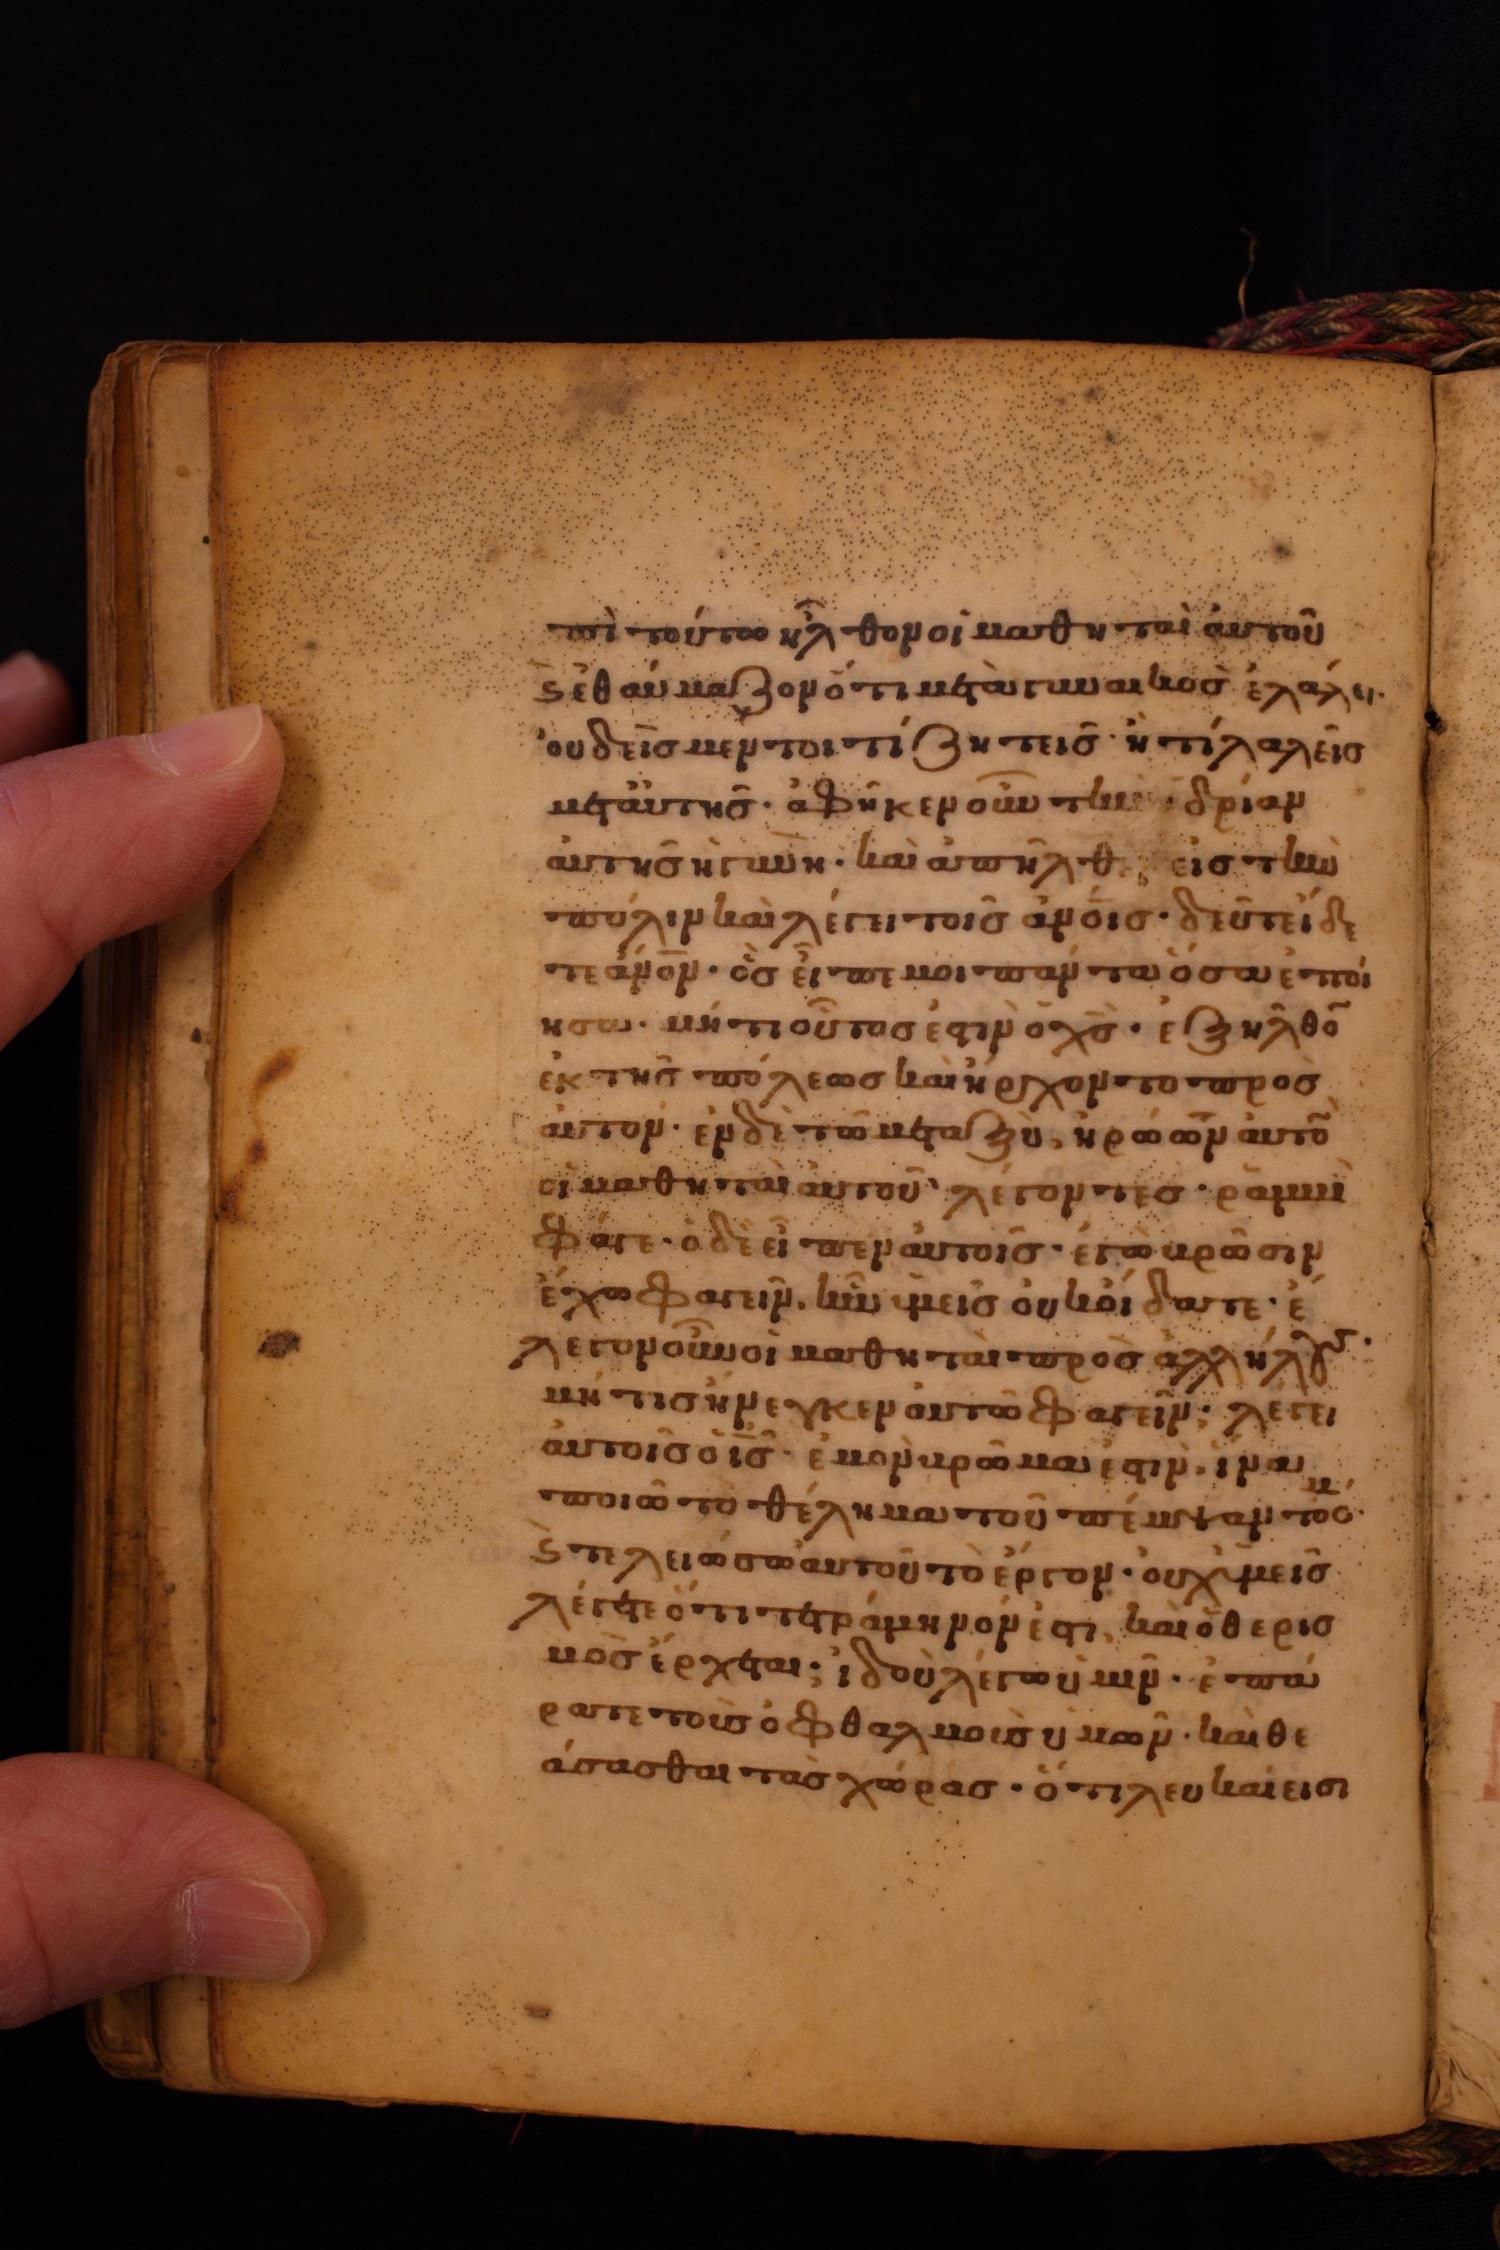 πὶ τούτω ἦλθον οἱ μαθηταὶ ἀυτοῦ
ϛ ἐθαύμαζον ὅτι μετὰ γυναικὸσ ἐλάλει·
ὀυδεὶσ μέντοι τί ζητεῖσ· ἢ τί λαλεῖσ
μετ ἀυτῆσ· ἀφῆκεν οὖν τὴν ὑδρίαν
ἀυτῆσ ἡ γυνὴ· καὶ ἀπῆλθεν εἰσ τὴν
πόλιν καὶ λέγει τοῖσ ἀν̅οισ· δεῦτε ἴδε
τε ἄν̅ον· ὃσ εἶπε μοι πάντα ὅσα ἐποί
ησα· μήτι οὗτοσ ἐστὶν ὁ χ̅σ· ἐξῆλθο̅
ἐκ τῆσ πόλεωσ καὶ ἤρχοντο πρὸσ
ἀυτόν· ἐν δὲ τῶ μεταξὺ, ἠρώων ἀυτὸ̅
οἱ μαθηταὶ ἀυτοῦ λέγοντεσ· ῥαββὶ
φάγε· ὁ δὲ εἶπεν ἀυτοῖσ· ἐγὼ βρῶσιν
ἔχω φαγεῖν, ἣν ὑμεῖσ ὀυκ ὄιδατε· ἔ
λεγον οὖν οἱ μαθηταὶ πρὸσ ἀλλήλουσ·
μή τισ ἤνεγκεν ἀυτῶ φαγεῖν; λέγει
ἀυτοῖσ ὁ ι̅σ· ἐμὸν βρῶμα ἐστὶν, ἵνα
ποιῶ τὸ θέλημα τοῦ πέμψαντόσ μ·
ϛ τελειώσω ἀυτοῦ τὸ ἔργον· ὀυχ ὑμεῖσ
λέγετε ὅτι τετράμηνόν ἐστι, καὶ ὁ θερισ
μὸσ ἔρχεται; ἰδοὺ λέγω ὑμῖν· ἐπά
ρατε τοὺσ ὀφθαλμοὺσ ὑμῶν· καὶ θε
άσασθαι τὰσ χώρασ· ὅτι λευκαί εισι